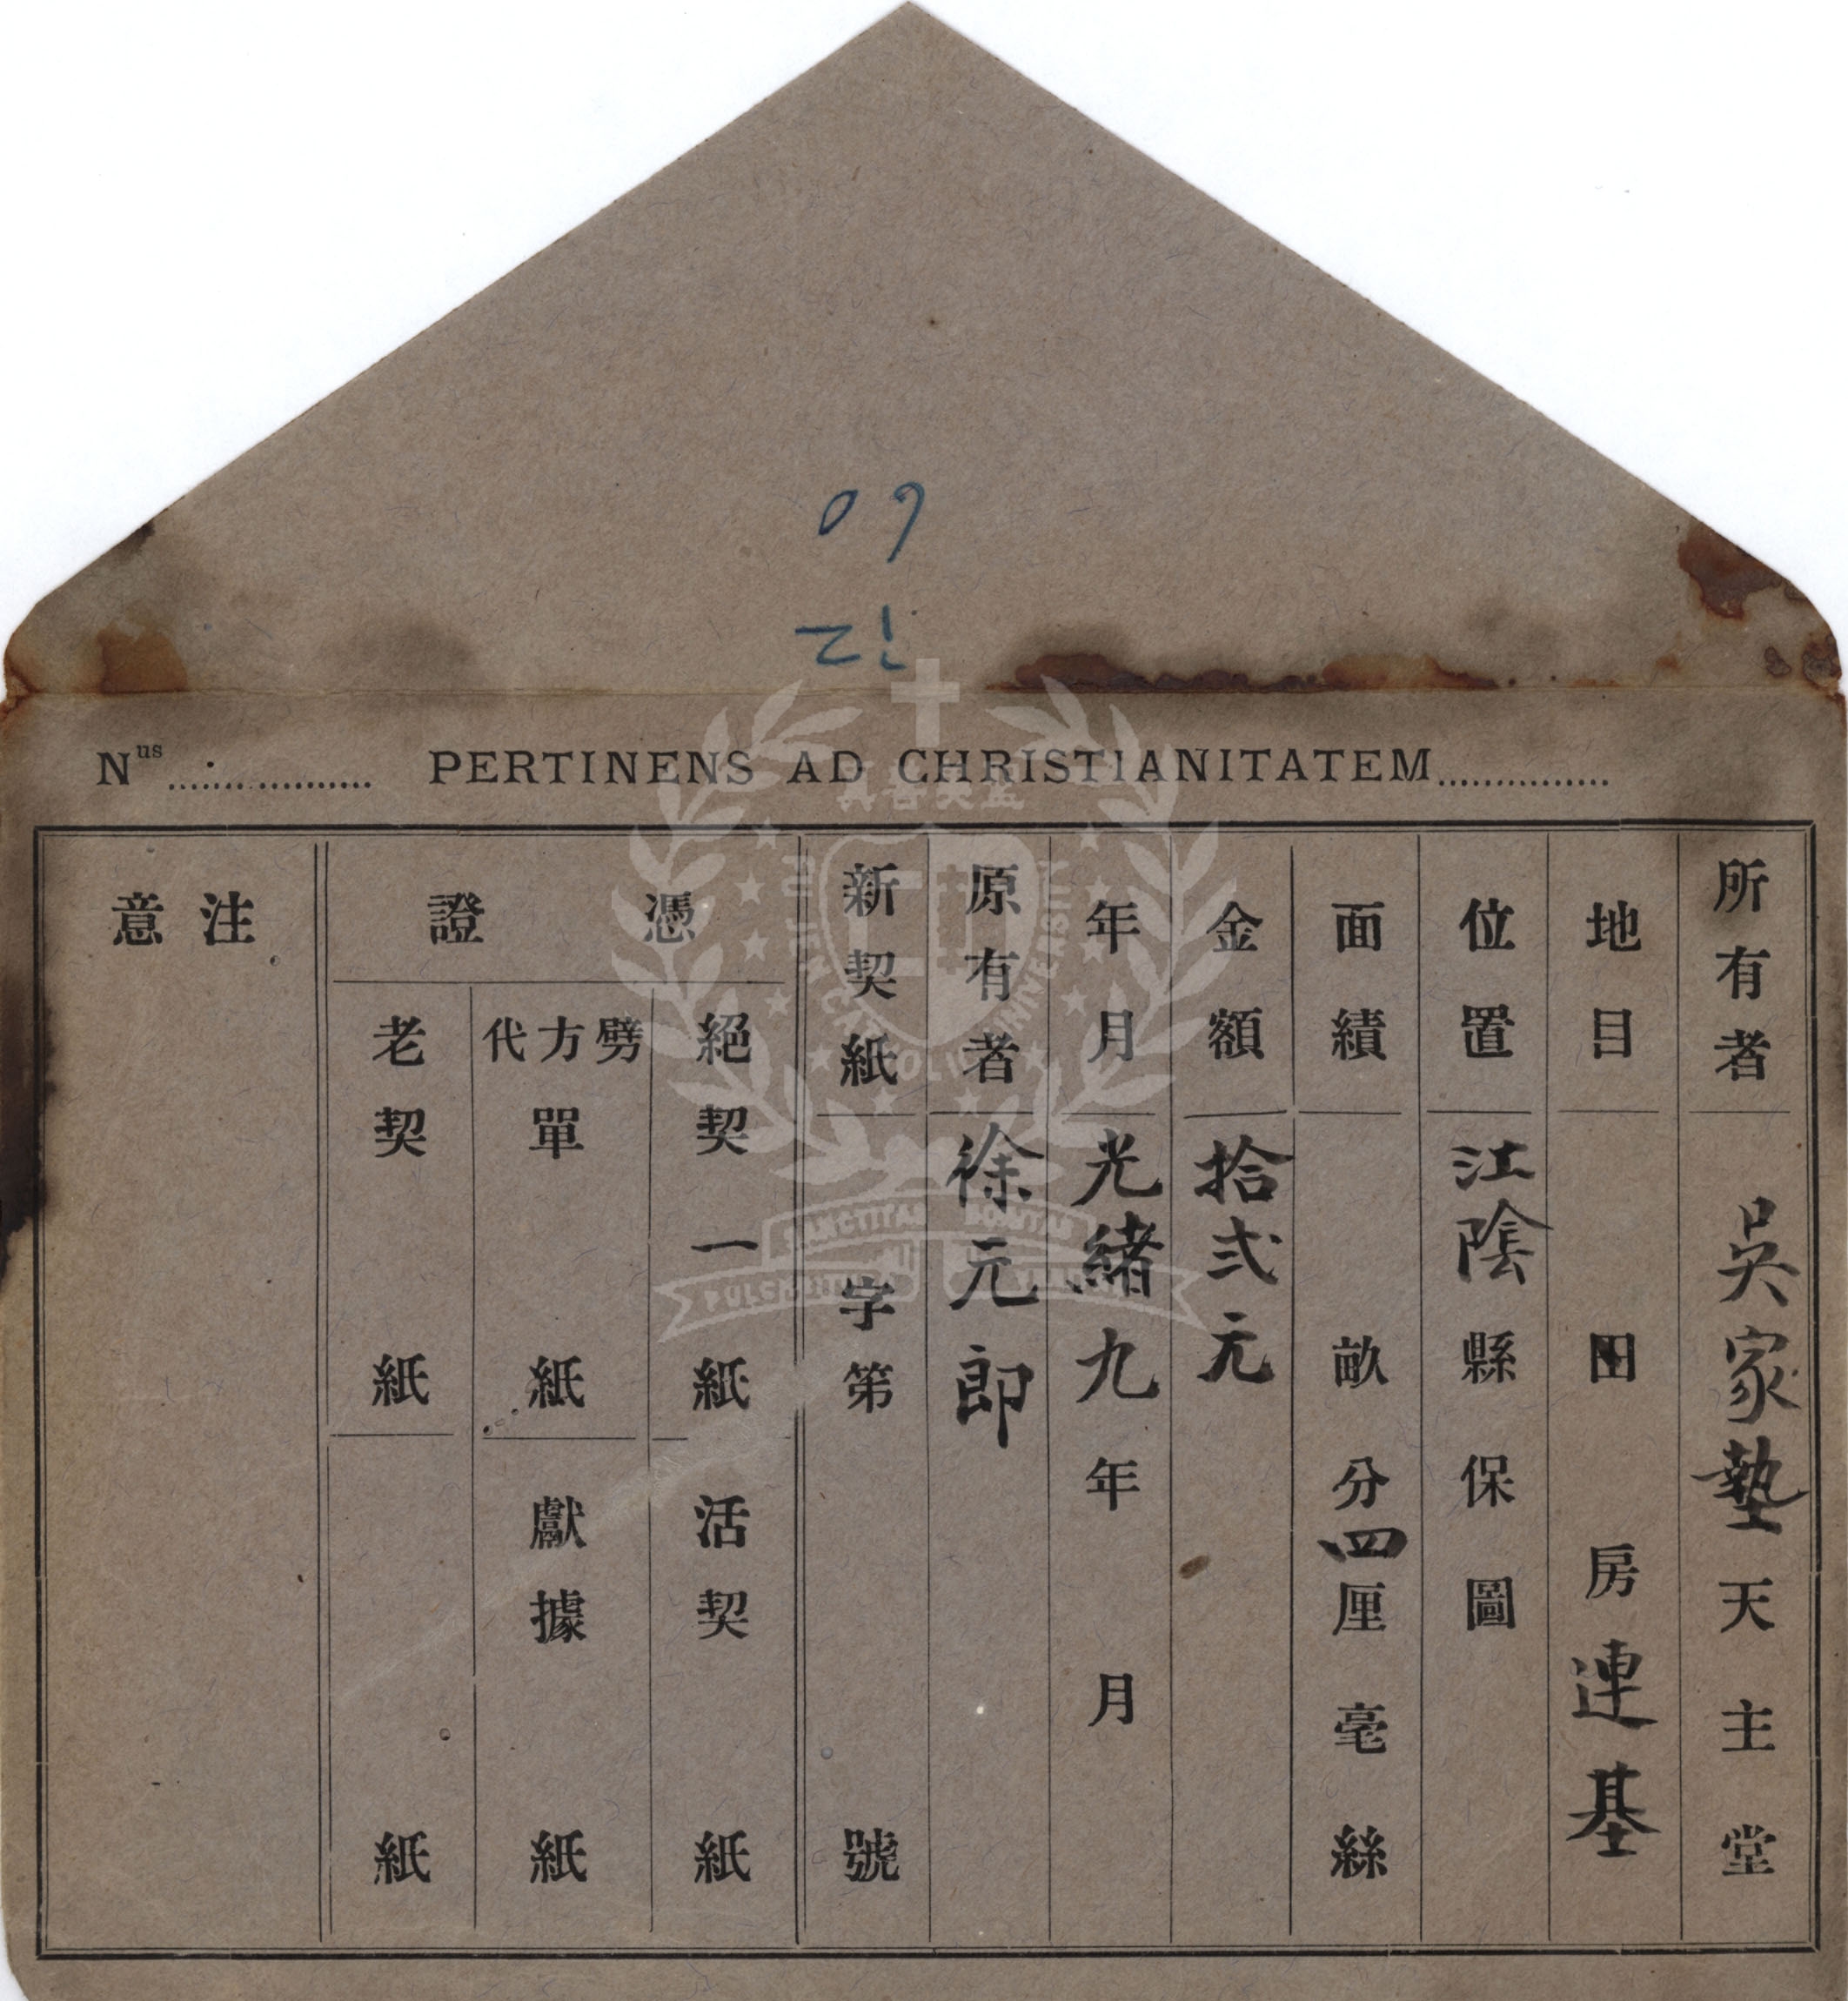 Nus.................. PERTINENS AD CHRISTIANITATEM...............
所有者 吳家墊天主堂
地目 田 房連基
位置 江陰縣保圖
面積 畝分四厘毫絲
金額 拾弍元
年月 光緒九年月
原有者 徐元郎
新契紙 字第號
憑證
絕契一紙
活契紙
劈方代單紙
獻據紙
老契紙
紙
注意